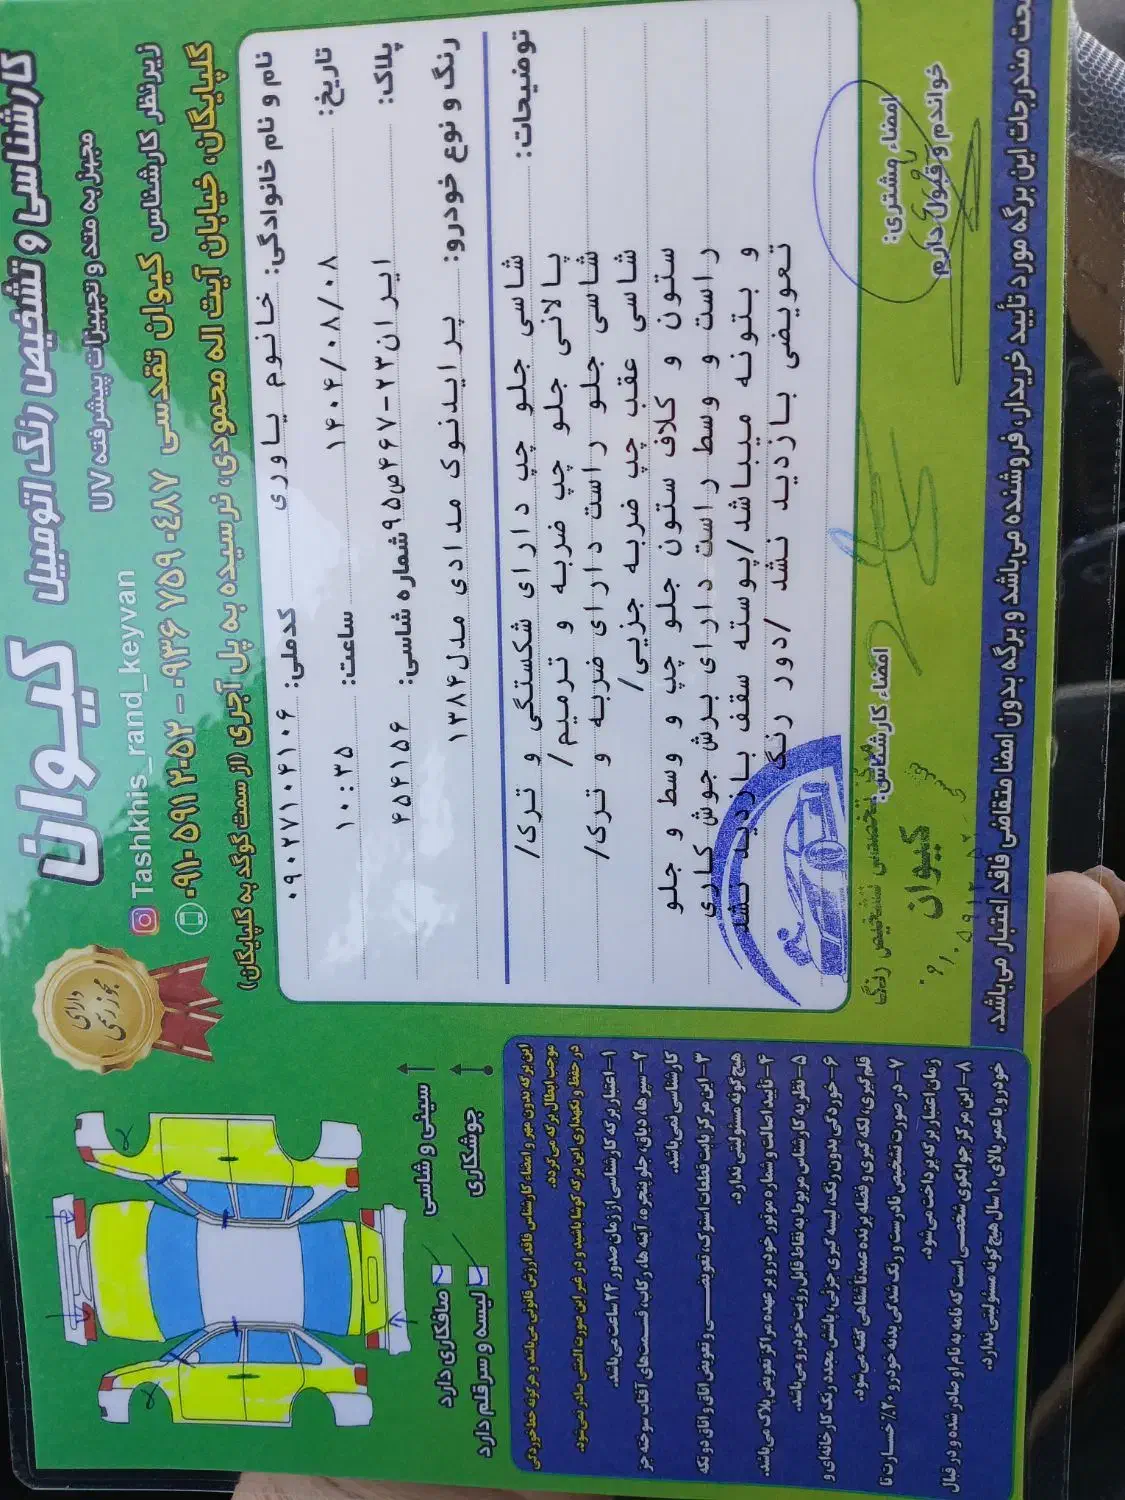 کارشناسی و تشخیص رنگ اتومبیل کیوان
مجهز به متد و تجهیزات پیشرفته UV
Tashkhis_rand_keyvan
زیرنظر کارشناس کیوان تقدسی ۰۹۳۶ ۷۵۹ ۰۴۸۷ - ۰۹۱۰ ۵۹۱ ۲۰۵۲
گلپایگان، خیابان آیت اله محمودی، نرسیده به پل آجری (از سمت گوگد به گلپایگان)
دارای مجوز رسمی
نام و نام خانوادگی: خانوم یاوری کدملی: ۰۹۰۲۷۱۰۴۱۰۶
تاریخ: ۱۴۰۴/۰۸/۰۸ ساعت: ۱۰:۳۵
پلاک: ایران۲۳-۴۶۷ص۹۵ شماره شاسی: ۴۵۴۱۵۶
رنگ و نوع خودرو: پرایدنوک مدادی مدل۱۳۸۴
توضیحات: شاسی جلو چپ دارای شکستگی و ترک/
پالانی جلو چپ ضربه و ترمیم/
شاسی جلو راست دارای ضربه و ترک/
شاسی عقب چپ ضربه جزیی/
ستون و کلاف ستون جلو چپ و وسط و جلو
راست و وسط راست دارای برش جوش کاری
و بتونه میباشد/پوسته سقف بازدید نشد
تعویضی بازدید نشد /دور رنگ
امضاء مشتری:
خواندم و قبول دارم
امضاء کارشناس:
تخصصی تشخیص رنگ
کیوان
صحت مندرجات این برگه مورد تأیید خریدار، فروشنده می‌باشد و برگه بدون امضا متقاضی فاقد اعتبار می‌باشد.
سینی و شاسی
جوشکاری
صافکاری دارد
لیسه و سرقلم دارد
این برگه بدون مهر و امضاء کارشناس فاقد ارزش قانونی می‌باشد و هرگونه خط‌خوردگی
موجب ابطال برگه می‌گردد.
در حفظ و نگهداری این برگه کوشا باشید و در غیر این صورت المثنی صادر نمی‌شود.
۱- اعتبار برگه کارشناسی از زمان صدور ۲۴ ساعت می‌باشد.
۲- سپرها، دیاق، جلو پنجره، آینه ها، رکاب، قسمت‌های آفتاب سوخته جز
کارشناسی نمی‌باشد.
۳- این مرکز بابت قطعات استوک، تعویضی و تعویض اتاق و اتاق دو تکه
هیچ‌گونه مسئولیتی ندارد.
۴- تأیید اصالت و شماره موتور خودرو بر عهده مراکز تعویض پلاک می‌باشد.
۵- نظریه کارشناس مربوط به نقاط قابل رؤیت خودرو می‌باشد.
۶- خوردگی بدون رنگ، لیسه گیری جزئی، پاشش مجدد رنگ کارخانه‌ای و
قلم گیری، لکه گیری و فضله پرنده عمدتاً شفاهی گفته می‌شود.
۷- در صورت تشخیص نادرست و رنگ شدگی بدنه خودرو ۲۰٪ خسارت تا
زمان اعتبار برگه پرداخت می‌شود.
۸- این مرکز جوابگوی شخصی است که نامه به نام او صادر شده و در قبال
خودرو با عمر بالای ۱۰ سال هیچ‌گونه مسئولیتی ندارد.